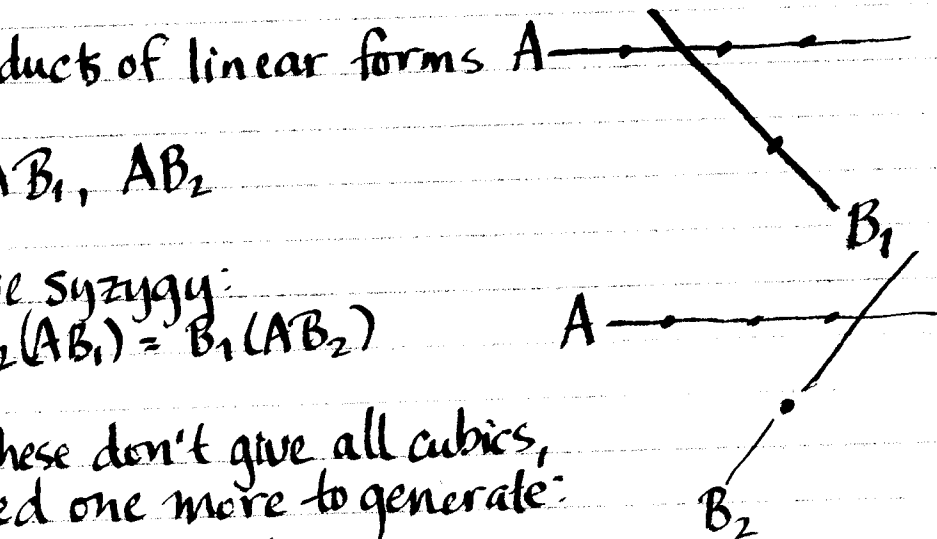 ducts of linear forms A
B₁, AB₂
B₁
e syzygy:
₂(AB₁) = B₁(AB₂)
A
hese don't give all cubics,
ed one more to generate:
B₂